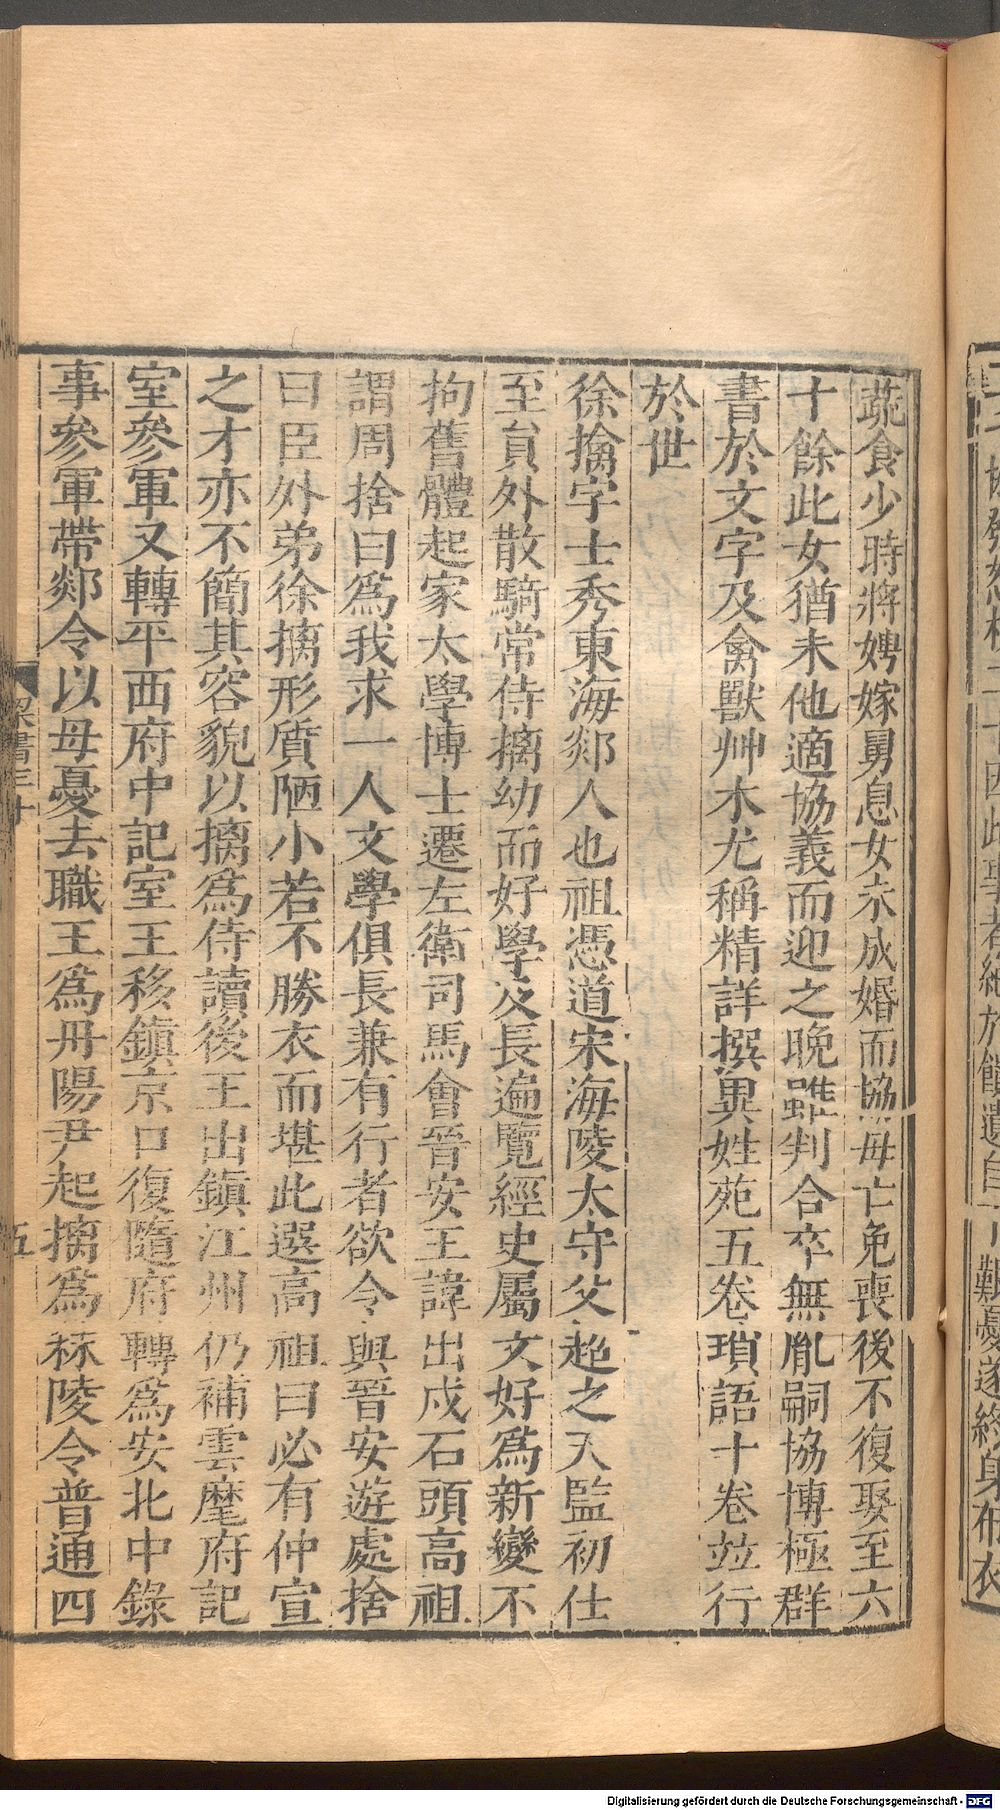 蔬食少時將娉嫁舅息女未成婚而協母亡免喪後不復娶至六
十餘此女猶未他適協義而迎之晚雖判合卒無胤嗣協博極群
書於文字及禽獸艸木尤稱精詳撰異姓苑五卷瑣語十卷竝行
於世
徐摛字士秀東海郯人也祖憑道宋海陵太守父超之天監初仕
至員外散騎常侍摛幼而好學及長遍覽經史屬文好為新變不
拘舊體起家太學博士遷左衛司馬會晉安王諱出戍石頭高祖
謂周捨曰為我求一人文學俱長兼有行者欲令與晉安遊處捨
曰臣外弟徐摛形質陋小若不勝衣而堪此選高祖曰必有仲宣
之才亦不簡其容貌以摛為侍讀後王出鎮江州仍補雲麾府記
室參軍又轉平西府中記室王移鎮京口復隨府轉為安北中錄
事參軍帶郯令以母憂去職王為丹陽尹起摛為秣陵令普通四
梁書三十
五
Digitalisierung gefördert durch die Deutsche Forschungsgemeinschaft - DFG